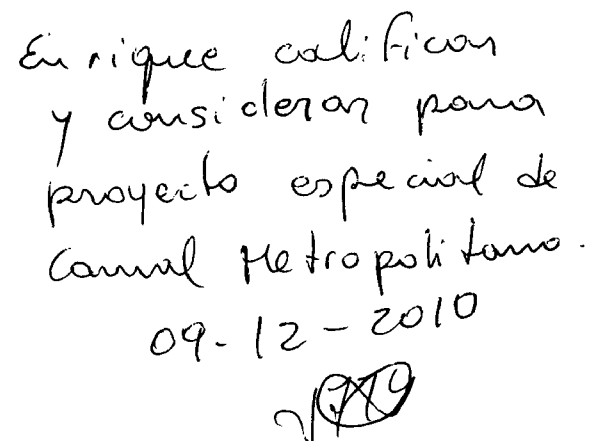 Enrique calificar
y considerar para
proyecto especial de
Camal Metropolitano.
09-12-2010